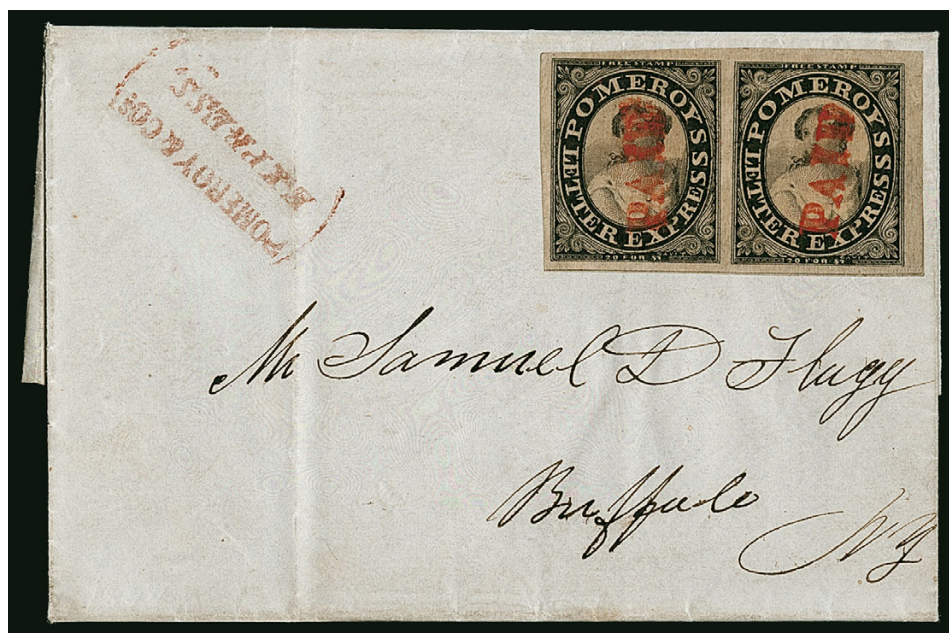 POMEROY & CO'S
EXPRESS.
FREE STAMP
POMEROYS
LETTER EXPRESS
20 FOR $1
PAID
FREE STAMP
POMEROYS
LETTER EXPRESS
20 FOR $1
PAID
Mr Samuel D Flagg
Buffalo
N Y